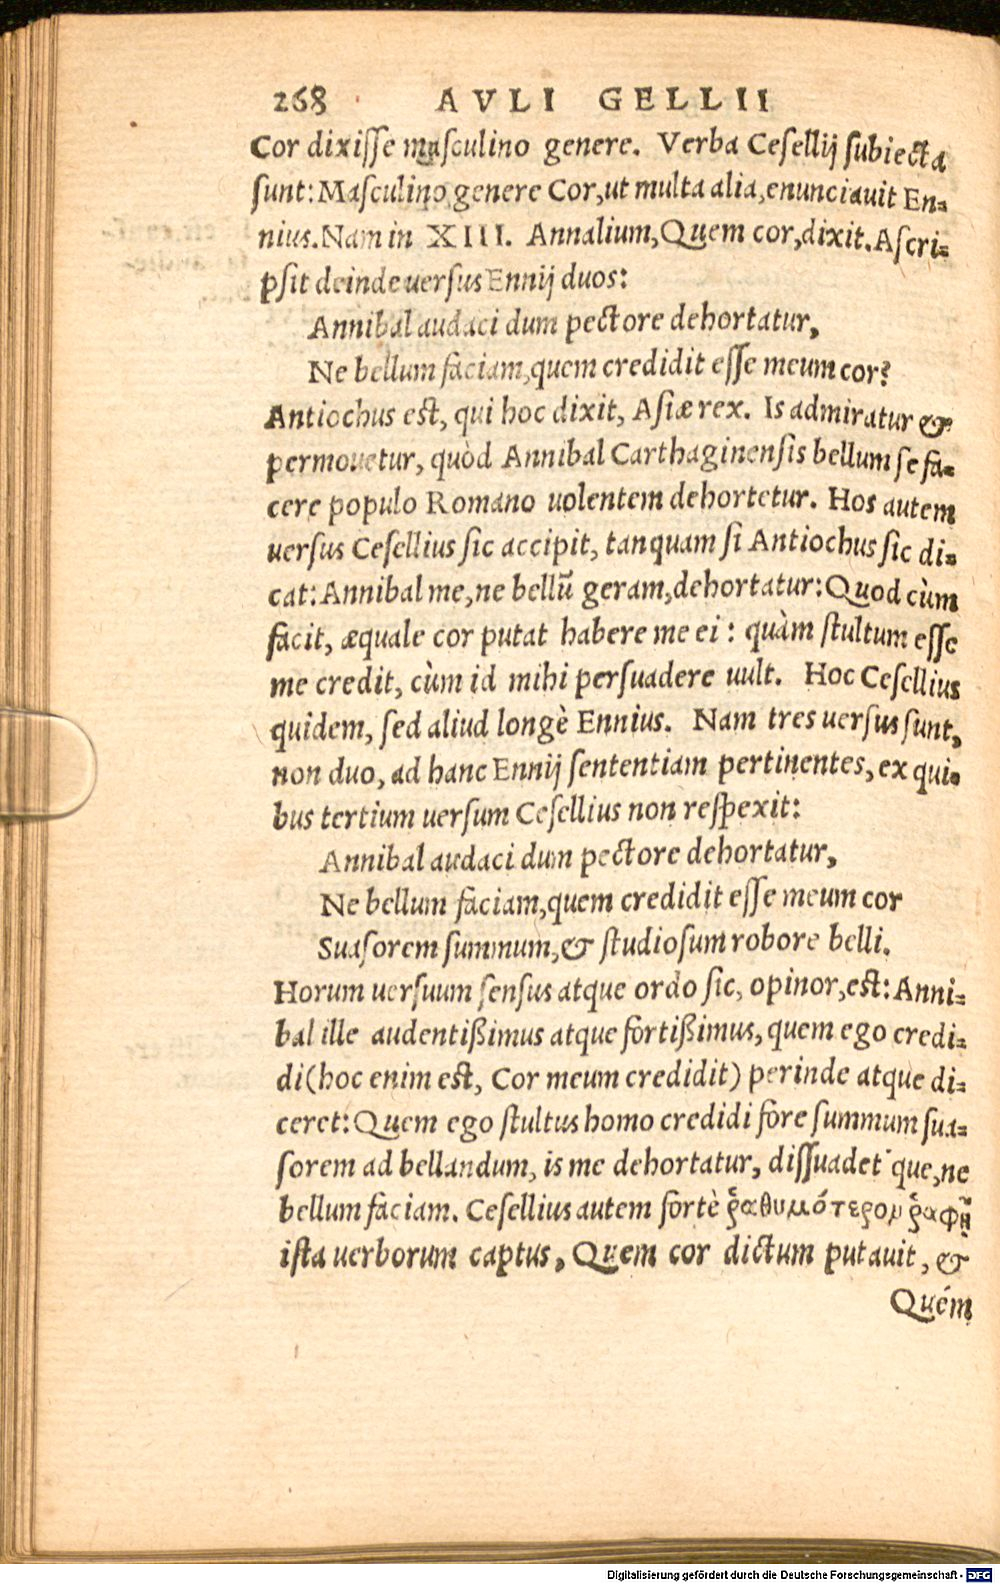 268 AVLI GELLII
Cor dixiſſe maſculino genere. Verba Ceſellij ſubiecta
ſunt: Maſculino genere Cor, ut multa alia, enunciauit En-
nius. Nam in XIII. Annalium, Quem cor, dixit. Aſcri-
pſit deinde uerſus Ennij duos:
Annibal audaci dum pectore dehortatur,
Ne bellum faciam, quem credidit eſſe meum cor?
Antiochus eſt, qui hoc dixit, Aſiæ rex. Is admiratur &
permouetur, quòd Annibal Carthaginenſis bellum ſe fa-
cere populo Romano uolentem dehortetur. Hos autem
uerſus Ceſellius ſic accipit, tanquam ſi Antiochus ſic di-
cat: Annibal me, ne bellū geram, dehortatur: Quod cùm
facit, æquale cor putat habere me ei: quàm ſtultum eſſe
me credit, cùm id mihi perſuadere uult. Hoc Ceſellius
quidem, ſed aliud longè Ennius. Nam tres uerſus ſunt,
non duo, ad hanc Ennij ſententiam pertinentes, ex qui-
bus tertium uerſum Ceſellius non reſpexit:
Annibal audaci dum pectore dehortatur,
Ne bellum faciam, quem credidit eſſe meum cor
Suaſorem ſummum, & ſtudioſum robore belli.
Horum uerſuum ſenſus atque ordo ſic, opinor, eſt: Anni-
bal ille audentißimus atque fortißimus, quem ego credi-
di (hoc enim eſt, Cor meum credidit) perinde atque di-
ceret: Quem ego ſtultus homo credidi fore ſummum ſua-
ſorem ad bellandum, is me dehortatur, diſſuadet'que, ne
bellum faciam. Ceſellius autem fortè ῥαθυμότερον ῥαφῇ
iſta uerborum captus, Quem cor dictum putauit, &
Quém
Digitalisierung gefördert durch die Deutsche Forschungsgemeinschaft - DFG